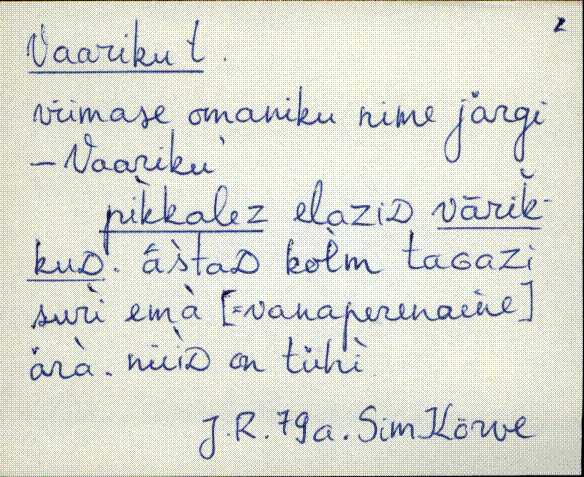 2
Vaariku t.
viimase omaniku nime järgi
– Vaariku
pìkkalez elaziD vārik̆-
kuD. āstaD kòlm taGazi
suri emà [=vanaperenaine]
ärà. nüiD on tühi
J.R. 79a. Sim Kōrve